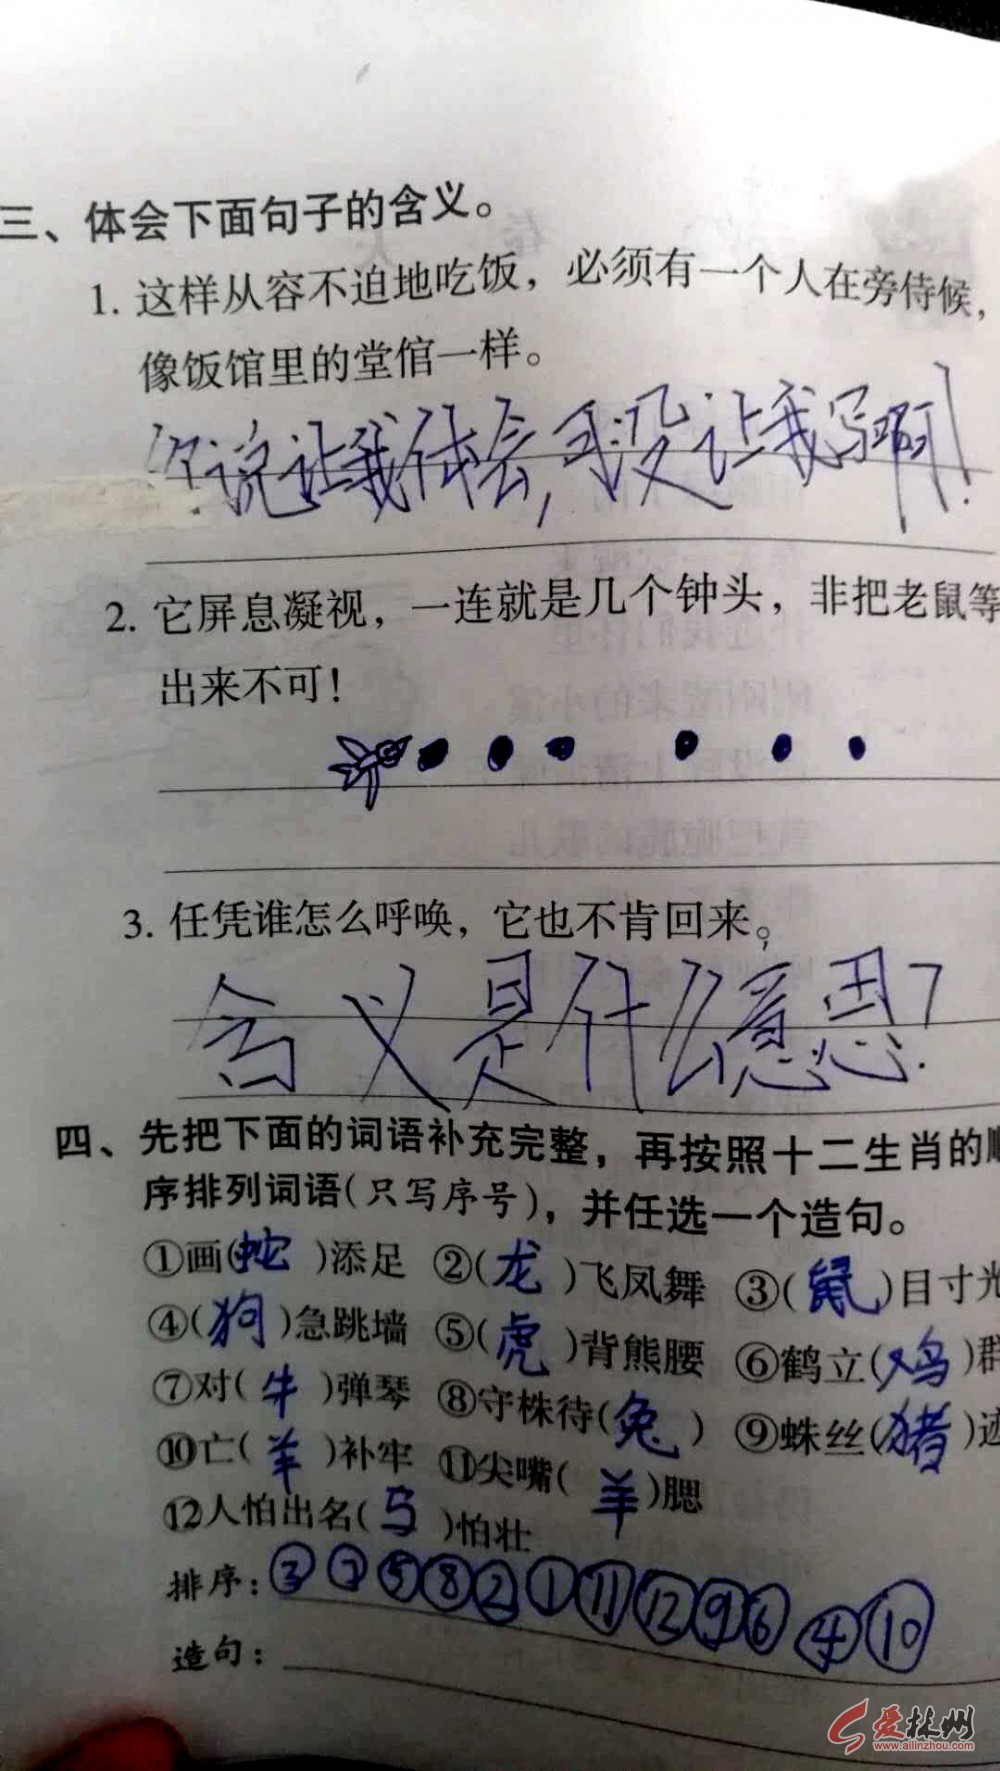 三、体会下面句子的含义。
1. 这样从容不迫地吃饭，必须有一个人在旁侍候，
像饭馆里的堂倌一样。
你说让我体会，可没让我写啊！
2. 它屏息凝视，一连就是几个钟头，非把老鼠等
出来不可！
3. 任凭谁怎么呼唤，它也不肯回来。
含义是什么意思？
四、先把下面的词语补充完整，再按照十二生肖的顺
序排列词语(只写序号)，并任选一个造句。
①画(蛇)添足 ②(龙)飞凤舞 ③(鼠)目寸光
④(狗)急跳墙 ⑤(虎)背熊腰 ⑥鹤立(鸡)群
⑦对(牛)弹琴 ⑧守株待(兔) ⑨蛛丝(猪)迹
⑩亡(羊)补牢 ⑪尖嘴(羊)腮
⑫人怕出名(马)怕壮
排序：③⑦⑤⑧②①⑪⑫⑨⑥④⑩
造句：
爱株州
www.ailinzhou.com